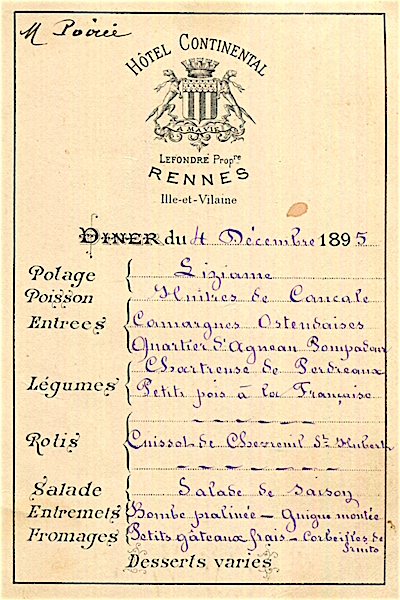 M Poirée
HÔTEL CONTINENTAL
A MA VIE
LEFONDRÉ Propre
RENNES
Ille-et-Vilaine
DINER du 4 Décembre 1895
Potage
Poisson Huitres de Cancale
Entrées Camargues Ostendaises
Quartier d'Agneau Pompadour
Chartreuse de Perdreaux
Légumes Petits pois à la Française
Rotis Cuissot de Chevreuil St Hubert
Salade Salade de saison
Entremets Bombe pralinée - Guigue montée
Fromages Petits gâteaux frais - Corbeilles de fruits
Desserts variés